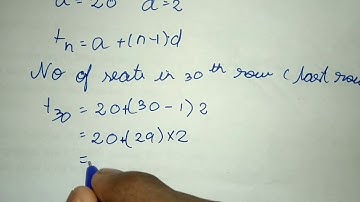 a = 20 d = 2
tn = a + (n-1)d
No of seats in 30th row (last row
t30 = 20+(30-1)2
= 20+(29)×2
=